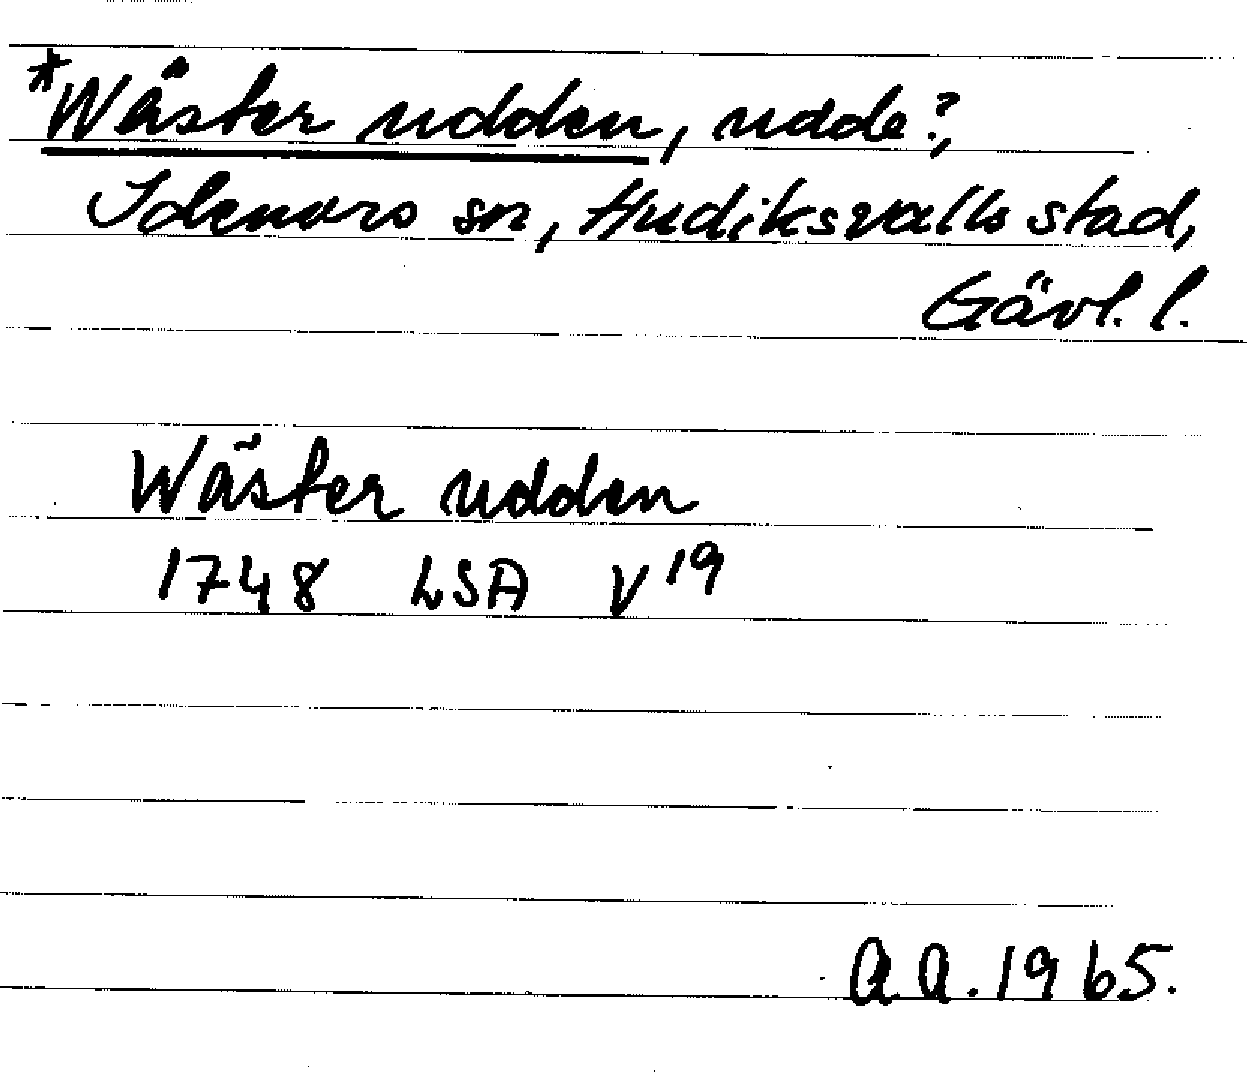 *Wäster udden, udde?,
Idenors sn, Hudiksvalls stad,
Gävl. l.
Wäster udden
1748 LSA V19
A A. 1965.